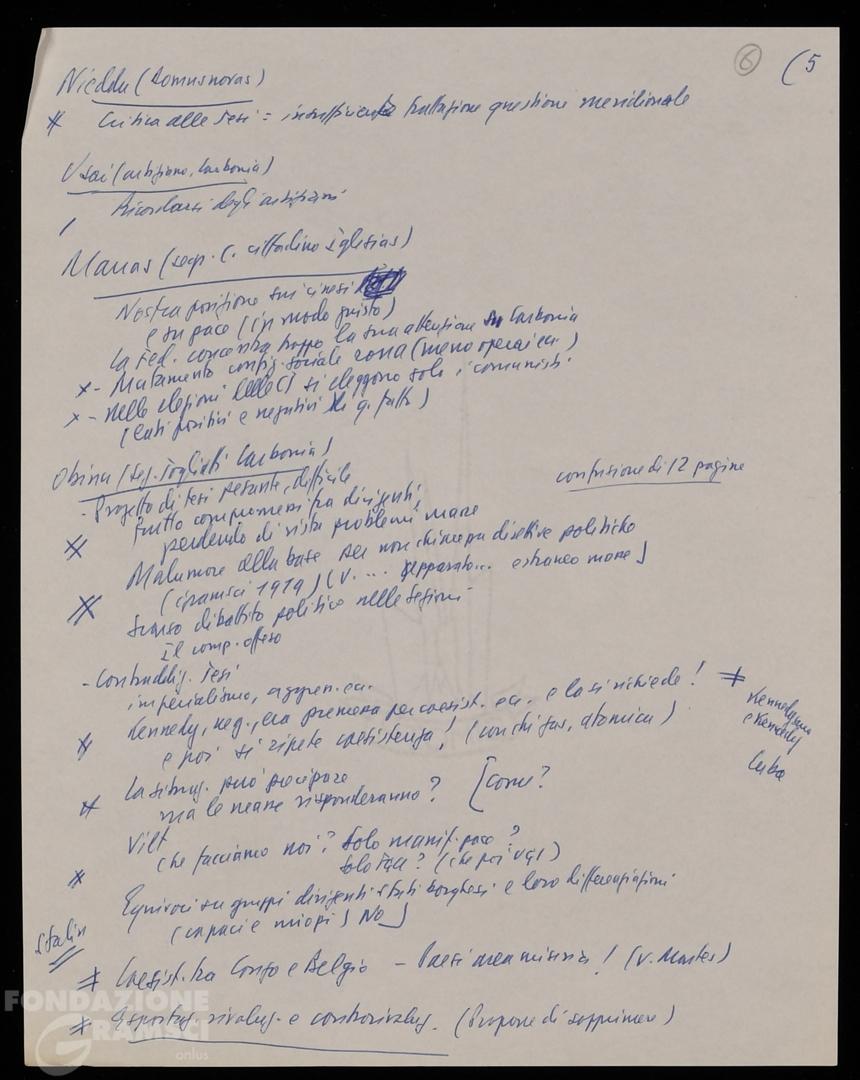 6 (5
Nieddu (Domusnovas)
* Critica alle Tesi = insufficiente trattazione questione meridionale
Usai (artigiano, Carbonia)
Ricordarsi degli artigiani
Manas (segr. C. cittadino Iglesias)
Nostra posizione sui cinesi
e su pace (in modo giusto)
La Fed. concentra troppo la sua attenzione su Carbonia
x - Mutamento config. sociale zona (meno operai ecc.)
x - Nelle elezioni delle CI si eleggono solo i comunisti
(lati positivi e negativi di q. fatto)
Obinu (sez. Togliatti Carbonia)
confusione di 12 pagine
- Progetto di tesi pesante, difficile
frutto compromessi fra dirigenti,
perdendo di vista problemi masse
Malumore della base per non chiarezza direttive politiche
(Gramsci 1919) (V. ... apparato... estraneo masse)
Scarso dibattito politico nelle Sezioni
Il comp. offeso
- Contraddiz. Tesi
imperialismo, aggress. ecc.
Kennedy, neg., era premessa per coesist. ecc. e la si richiede! ≠
Kennedysmo
e Kennedy
Cuba
e poi si ripete coesistenza! (con chi gas, atomica)
La situaz. può precipitare
ma le masse risponderanno? [Come?
Viet
che facciamo noi? Solo manif. pace?
solo FGCI? (che poi UGI)
Equivoci su gruppi dirigenti Stati borghesi e loro differenziazioni
(capaci e miopi) No
Stalin
≠ Coesist. tra Congo e Belgio - Paesi area miseria! (v. Marx)
* Esportaz. rivoluz. e controrivoluz. (Propone di sopprimere)
FONDAZIONE
GRAMSCI
onlus